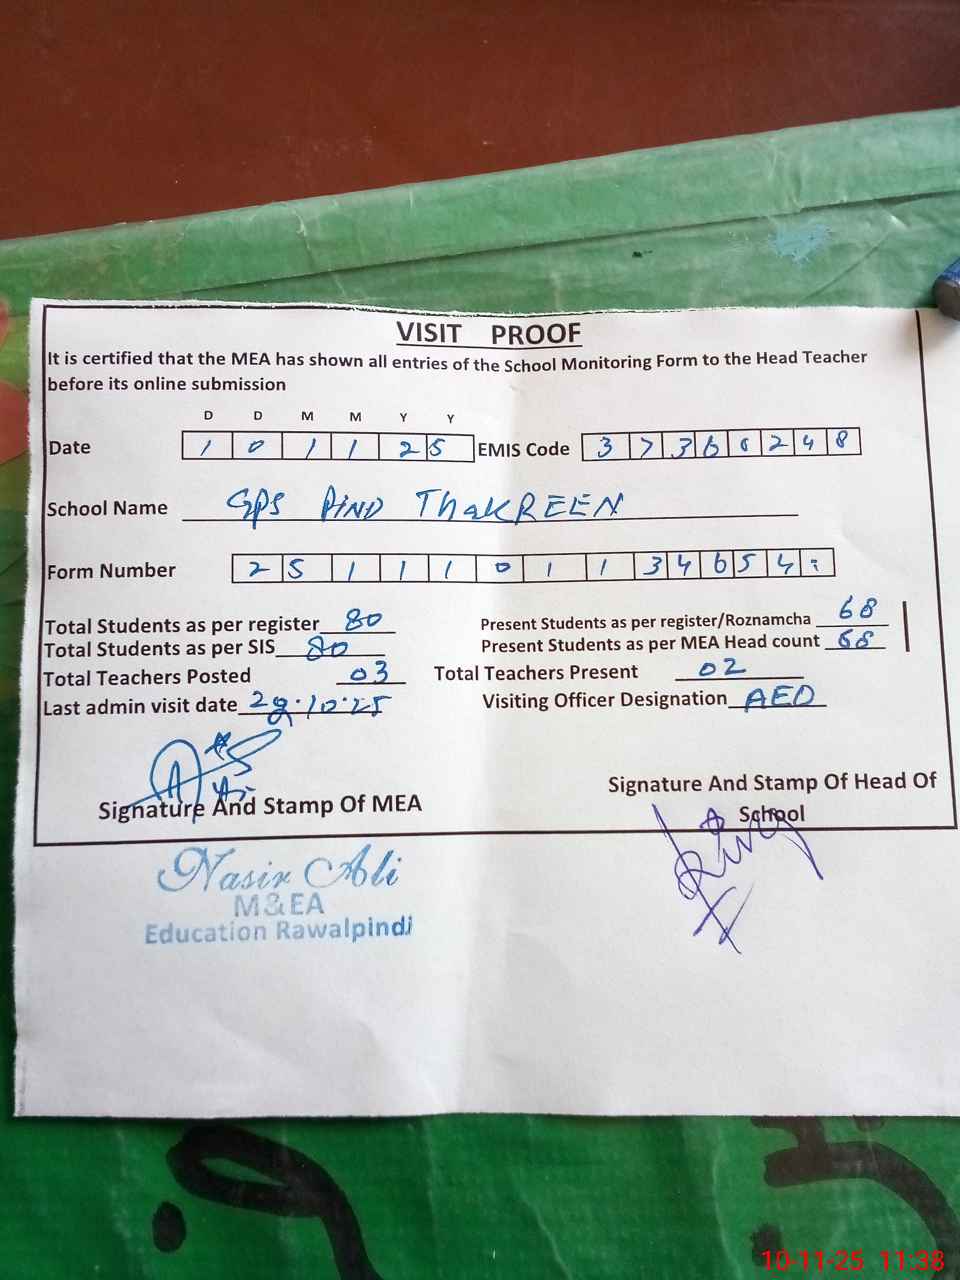 VISIT PROOF
It is certified that the MEA has shown all entries of the School Monitoring Form to the Head Teacher
before its online submission
D D M M Y Y
Date 1 0 1 1 2 5 EMIS Code 3 7 3 6 0 2 4 8
School Name GPS PIND ThakREEN
Form Number 2 5 1 1 1 0 1 1 3 4 6 5 4
Total Students as per register 80 Present Students as per register/Roznamcha 68
Total Students as per SIS 80 Present Students as per MEA Head count 68
Total Teachers Posted 03 Total Teachers Present 02
Last admin visit date 28.10.25 Visiting Officer Designation AEO
Signature And Stamp Of MEA Signature And Stamp Of Head Of
School
Nasir Ali
M&EA
Education Rawalpindi
10-11-25 11:38